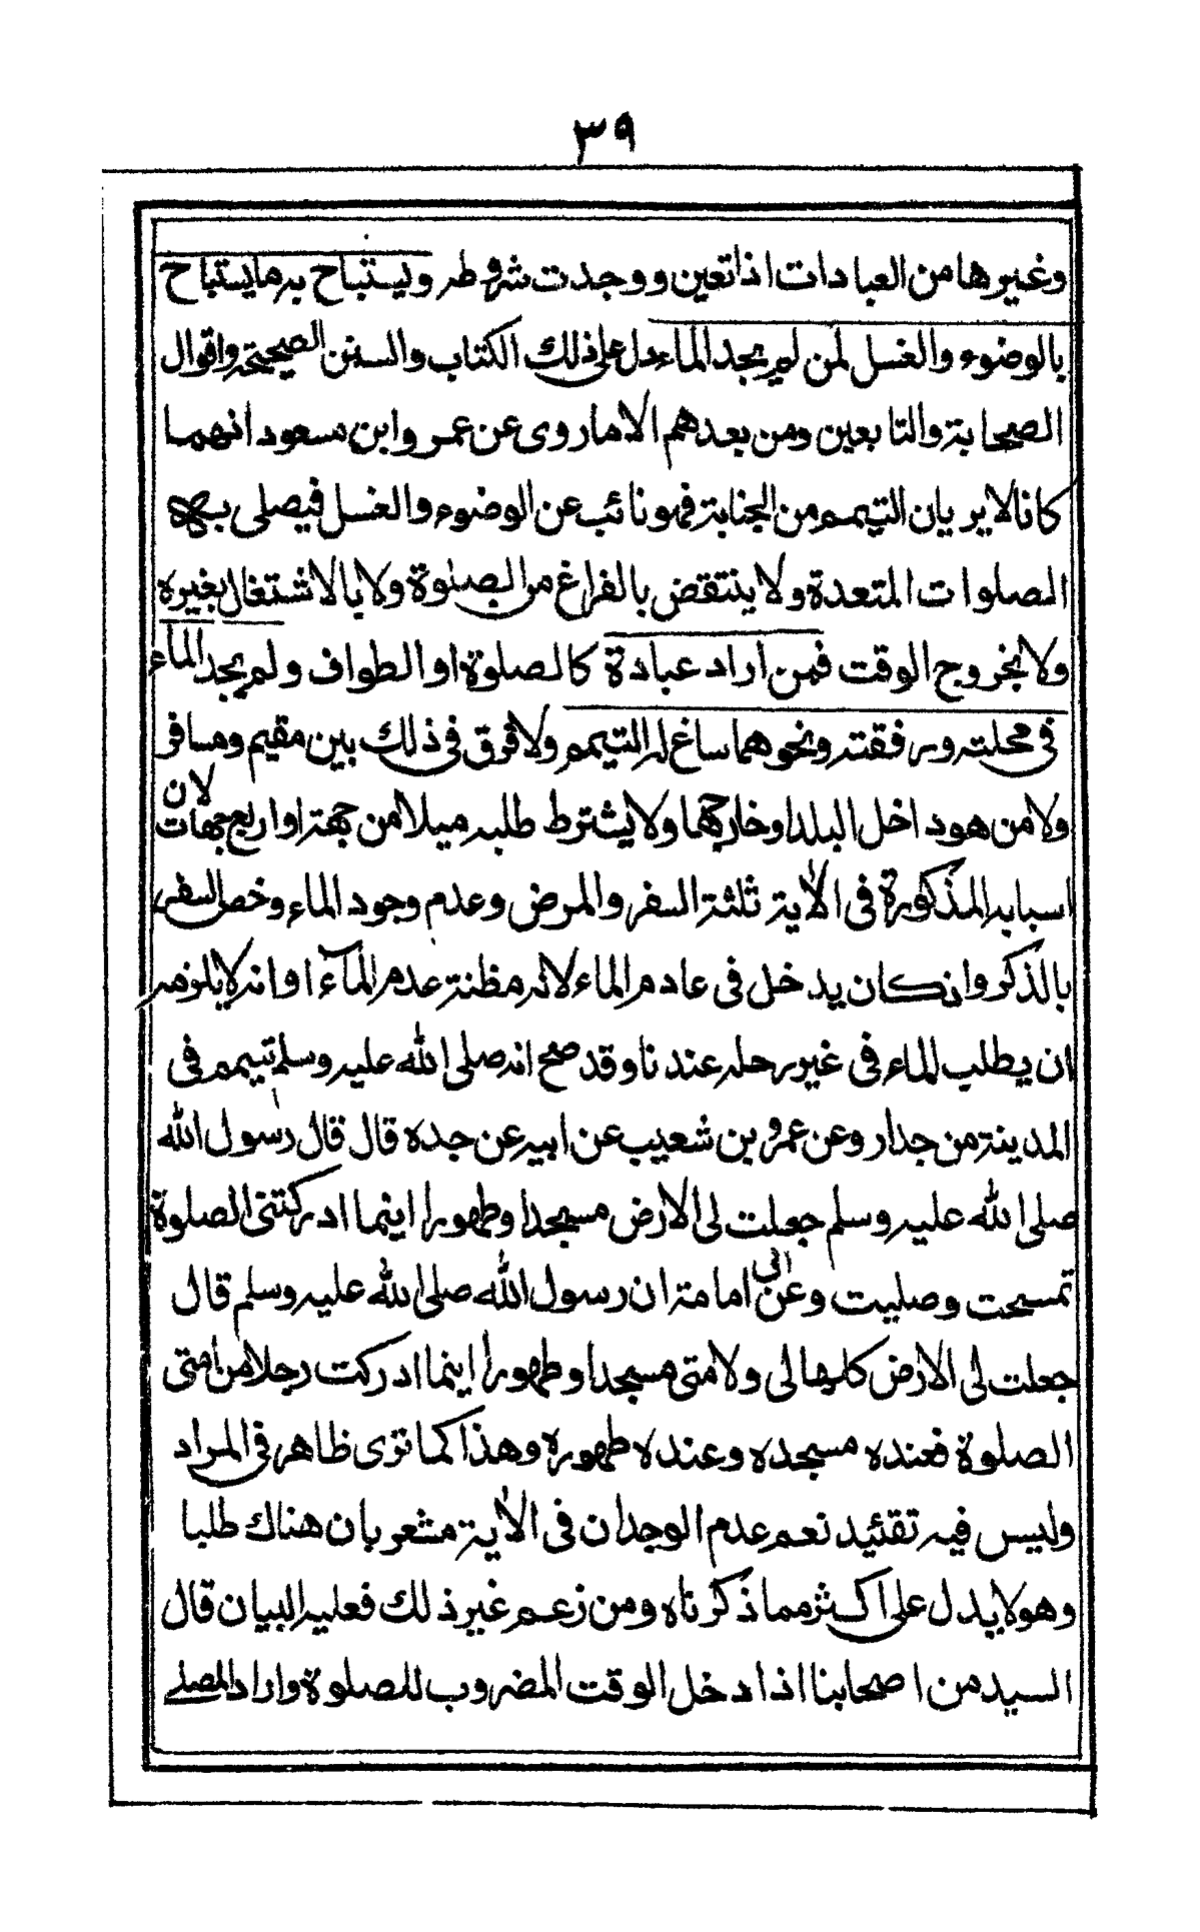 ٣٩
وغيرها من العبادات اذا تعين ووجدت شروطه ويستباح به ما يستباح
بالوضوء والغسل لمن لم يجد الماء دل على ذلك الكتاب والسنن الصحيحة واقوال
الصحابة والتابعين ومن بعدهم الا ما روى عن عمر وابن مسعود انهما
كانا لا يريان التيمم من الجنابة فهو نائب عن الوضوء والغسل فيصلى به
الصلوات المتعددة ولا ينتقض بالفراغ من الصلوة ولا بالاشتغال بغيره
ولا بخروج الوقت فمن اراد عبادة كالصلوة او الطواف ولم يجد الماء
فى محلته ورفقته ونحوهما ساغ له التيمم ولا فرق فى ذلك بين مقيم ومسافر
ولا من هو داخل البلد او خارجها ولا يشترط طلبه ميلا من جهة او اربع جهات لان
اسبابه المذكورة فى الأية ثلثة السفر والمرض وعدم وجود الماء وخص السفر
بالذكر وان كان يدخل فى عادم الماء لانه مظنة عدم المآء او انه لا يلزمه
ان يطلب الماء فى غير رحله عندنا وقد صح انه صلى الله عليه وسلم تيمم فى
المدينة من جدار وعن عمرو بن شعيب عن ابيه عن جده قال قال رسول الله
صلى الله عليه وسلم جعلت لى الارض مسجدا وطهورا اينما ادركتنى الصلوة
تمسحت وصليت وعن ابى امامة ان رسول الله صلى الله عليه وسلم قال
جعلت لى الارض كلها لى ولامتى مسجدا وطهورا اينما ادركت رجلا من امتى
الصلوة فعنده مسجده وعنده طهوره وهذا كما ترى ظاهر فى المراد
وليس فيه تقئيد نعم عدم الوجدان فى الأية مشعر بان هناك طلبا
وهو لا يدل على اكثر مما ذكرناه ومن زعم غير ذلك فعليه البيان قال
السيد من اصحابنا اذا دخل الوقت المضروب للصلوة واراد المصلے